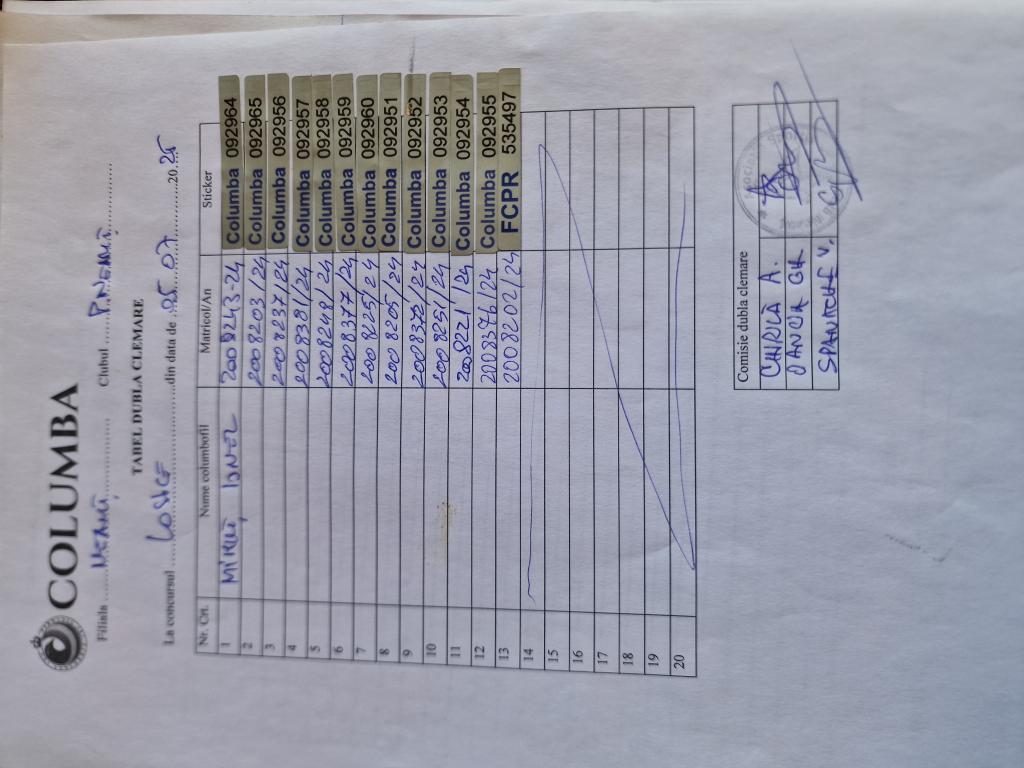 COLUMBA
Filiala NEAMȚ Clubul P. NEAMȚ
TABEL DUBLA CLEMARE
La concursul din data de 05 07 2025
Nr. Crt. Nume columbofil Matricol/An Sticker
1 IONEL 2008243-24 Columba 092964
2 2008203/24 Columba 092965
3 2008237/24 Columba 092956
4 2008381/24 Columba 092957
5 2008248/24 Columba 092958
6 2008377/24 Columba 092959
7 2008225/24 Columba 092960
8 2008205/24 Columba 092951
9 2008372/24 Columba 092952
10 2008251/24 Columba 092953
11 2008221/24 Columba 092954
12 Columba 092955
13 2008202/24 FCPR 535497
14
15
16
17
18
19
20
Comisie dubla clemare
CHIRILĂ A.
DANCIA GH
V.